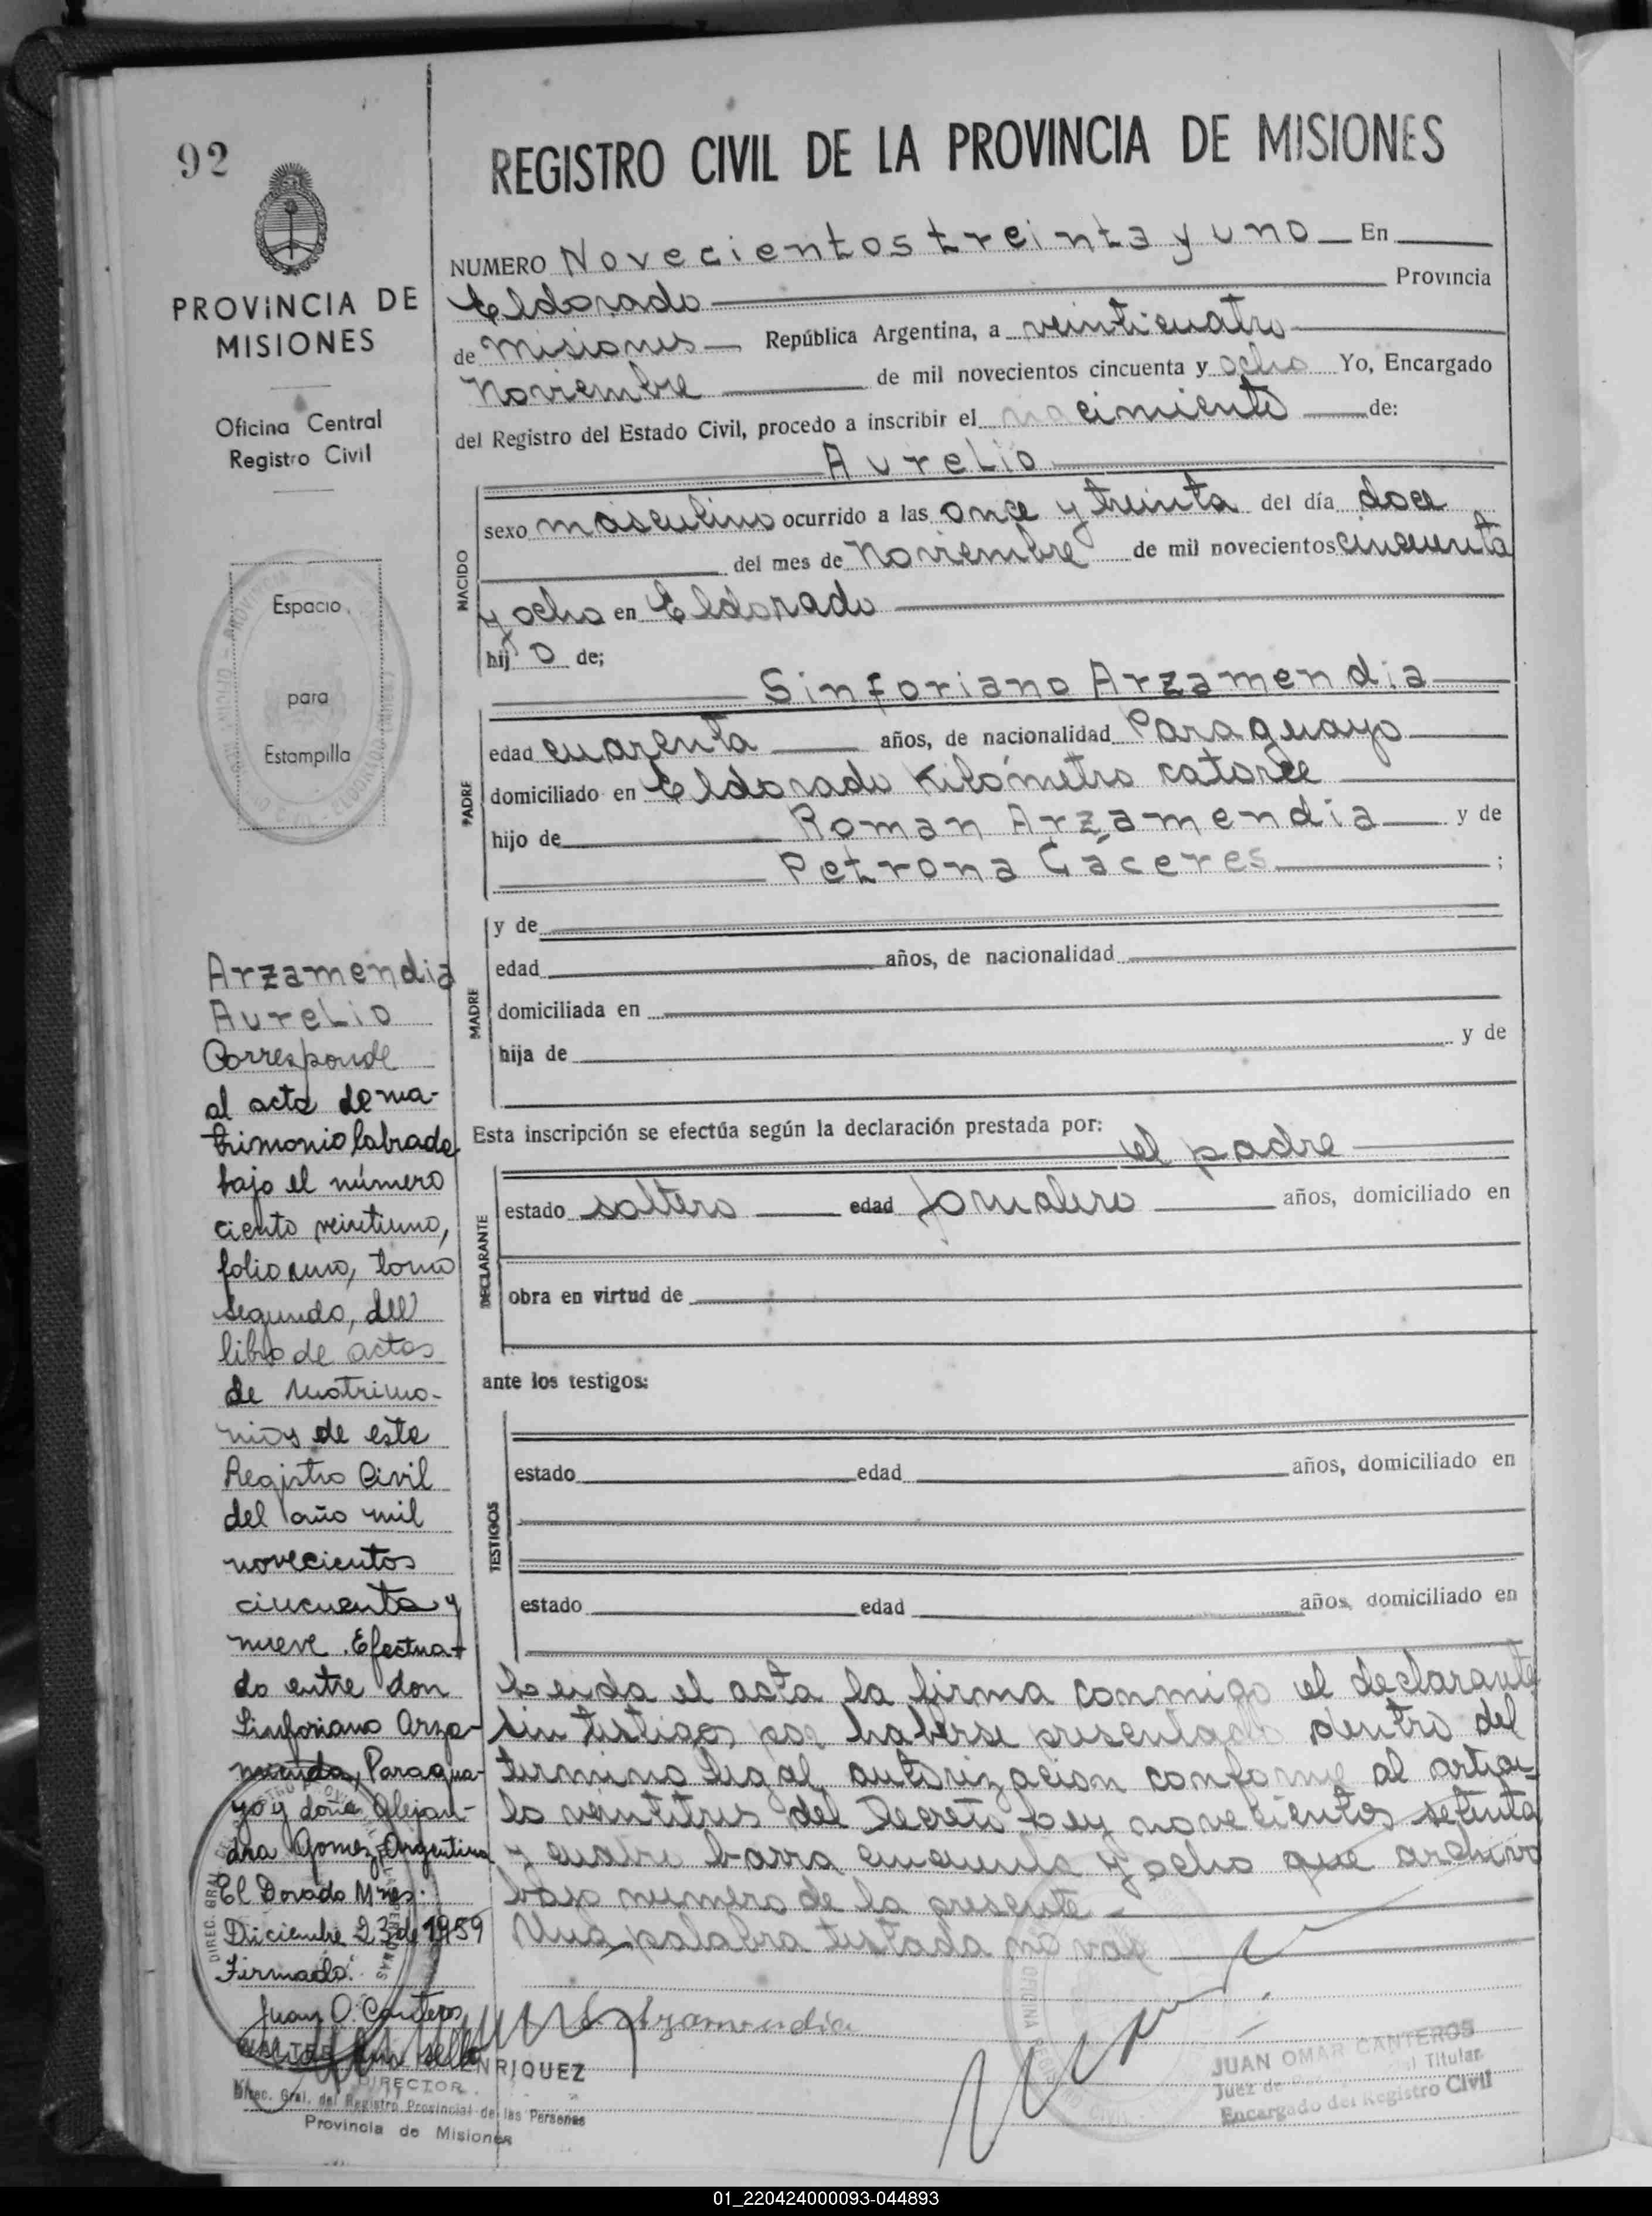 92
PROVINCIA DE
MISIONES
Oficina Central
Registro Civil
Espacio
para
Estampilla
Arzamendia
Aurelio
Corresponde
al acta de ma-
trimonio labrada
bajo el número
ciento veintiuno,
folio uno, tomo
segundo, del
libro de actas
de Matrimo-
nios de este
Registro Civil
del año mil
novecientos
cincuenta y
nueve. Efectua-
do entre don
Sinforiano Arza-
mendia, Paragua-
yo y doña Alejan-
dra Gomez, Argentina
El Dorado Mnes.
Diciembre 23 de 1959
Firmado:
Juan O. Canteros
ENRIQUEZ
DIRECTOR
Direc. Gral. del Registro Provincial de las Personas
Provincia de Misiones
REGISTRO CIVIL DE LA PROVINCIA DE MISIONES
NUMERO Novecientos treinta y uno En
Eldorado Provincia
de Misiones República Argentina, a veinticuatro
Noviembre de mil novecientos cincuenta y ocho Yo, Encargado
del Registro del Estado Civil, procedo a inscribir el nacimiento de:
Aurelio
NACIDO
sexo masculino ocurrido a las once y treinta del día doce
del mes de Noviembre de mil novecientos cincuenta
y ocho en Eldorado
hijo de;
Sinforiano Arzamendia
PADRE
edad cuarenta años, de nacionalidad Paraguayo
domiciliado en Eldorado Kilómetro catorce
hijo de Roman Arzamendia y de
Petrona Cáceres ;
MADRE
y de
edad años, de nacionalidad
domiciliada en
hija de y de
Esta inscripción se efectúa según la declaración prestada por:
el padre
DECLARANTE
estado soltero edad Jornalero años, domiciliado en
obra en virtud de
ante los testigos:
TESTIGOS
estado edad años, domiciliado en
estado edad años, domiciliado en
Leida el acta la firma conmigo el declarante
sin testigos por haberse presentado dentro del
termino legal, autorizacion conforme al articu-
lo veintitres del Decreto Ley novecientos setenta
y cuatro barra cincuenta y ocho que archivo
bajo numero de la presente.-
Una palabra testada no vale
S Arzamendia
JUAN OMAR CANTEROS
Juez de Titular
Encargado del Registro Civil
01_220424000093-044893